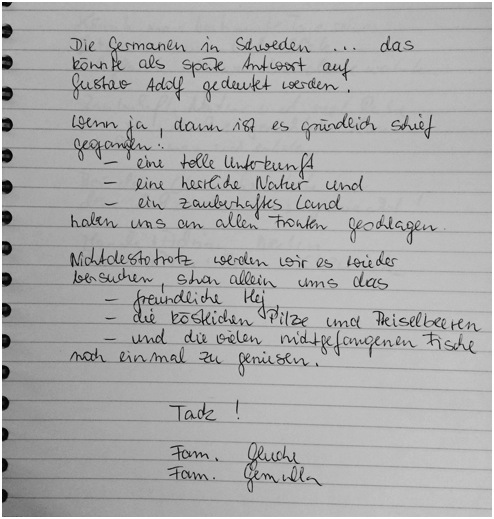 Die Germanen in Schweden ... das
könnte als späte Antwort auf
Gustav Adolf gedeutet werden.
Wenn ja, dann ist es gründlich schief
gegangen:
- eine tolle Unterkunft
- eine herrliche Natur und
- ein zauberhaftes Land
haben uns an allen Fronten geschlagen.
Nichtdestotrotz werden wir es wieder
versuchen, schon allein ums das
- freundliche Hej,
- die köstlichen Pilze und Preiselbeeren
- und die vielen nichtgefangenen Fische
noch einmal zu geniesen.
Tack !
Fam.
Fam. Gemulla